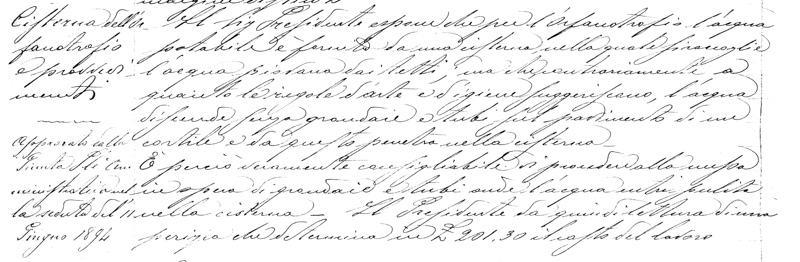 Cisterna dell'Or
fanotrofio
e provvedi
menti
Approvato dalla
Giunta P.le Am
ministrativa nel
la seduta del 11
Giugno 1894
Il Sig. Presidente espone che per l'Orfanotrofio l'acqua
potabile è fornita da una cisterna nella quale si raccoglie
l'acqua piovana dai tetti, ma che contrariamente a
quanto le regole d'arte e d'igiene suggeriscano, l'acqua
discende senza grondaie e tubi sul pavimento di un
cortile e da questo penetra nella cisterna.
È perciò veramente consigliabile di procedere alla messa
in opera di grondaie e tubi onde l'acqua entri pulita
nella cisterna. — Il Presidente dà quindi lettura di una
perizia che determina in £ 201.30 il costo del lavoro